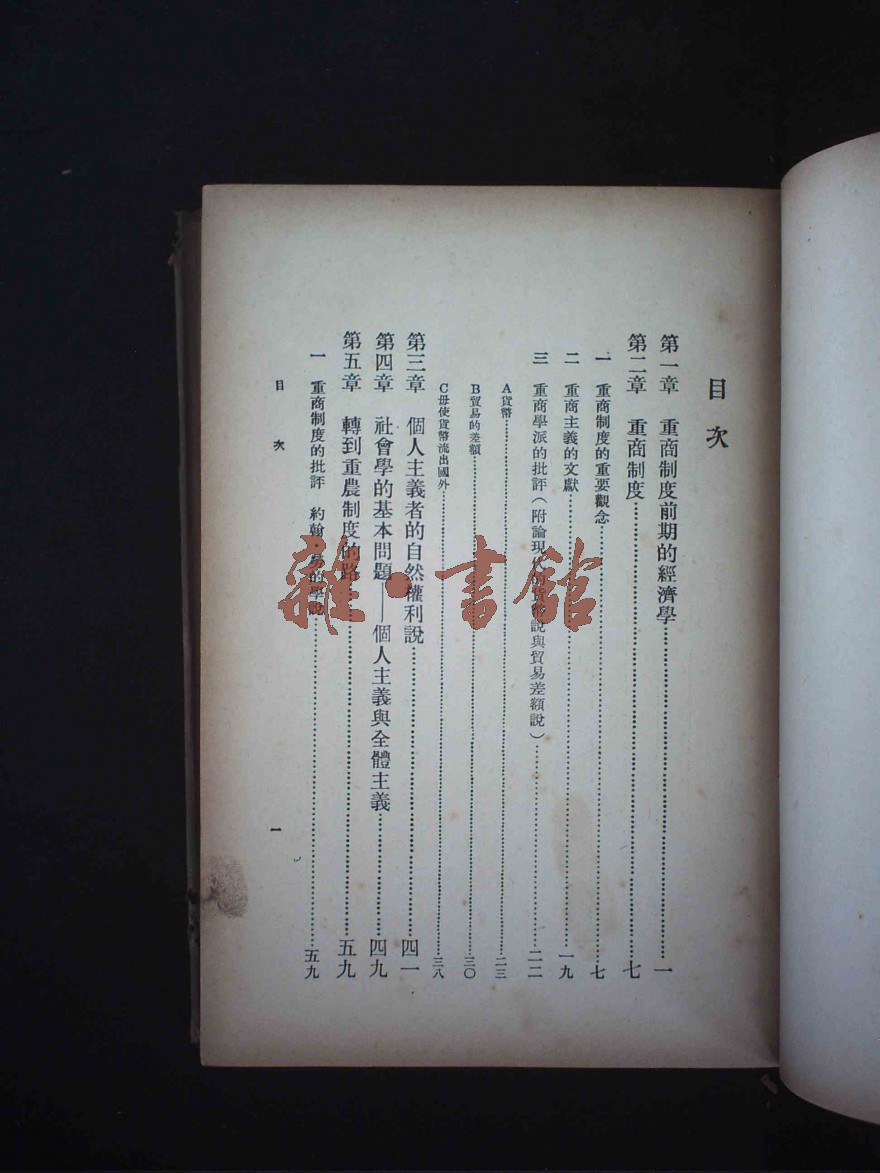 目次
第一章　重商制度前期的經濟學…………一
第二章　重商制度…………七
一　重商制度的重要觀念…………七
二　重商主義的文獻…………一九
三　重商學派的批評（附論現代的貨幣說與貿易差額說）…………二二
A貨幣…………二三
B貿易的差額…………三〇
C毋使貨幣流出國外…………三八
第三章　個人主義者的自然權利說…………四一
第四章　社會學的基本問題——個人主義與全體主義…………四九
第五章　轉到重農制度的路…………五九
一　重商制度的批評　約翰·勞的學說…………五九
目次
一
雜·書館